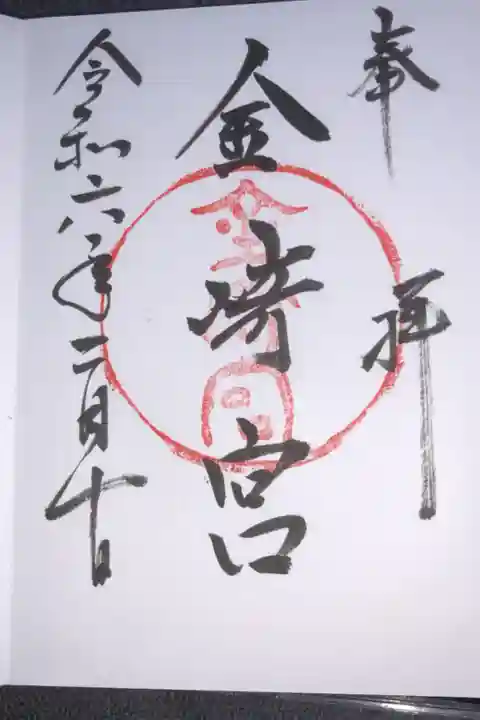 奉拝
金崎宮
令和六年二月十日